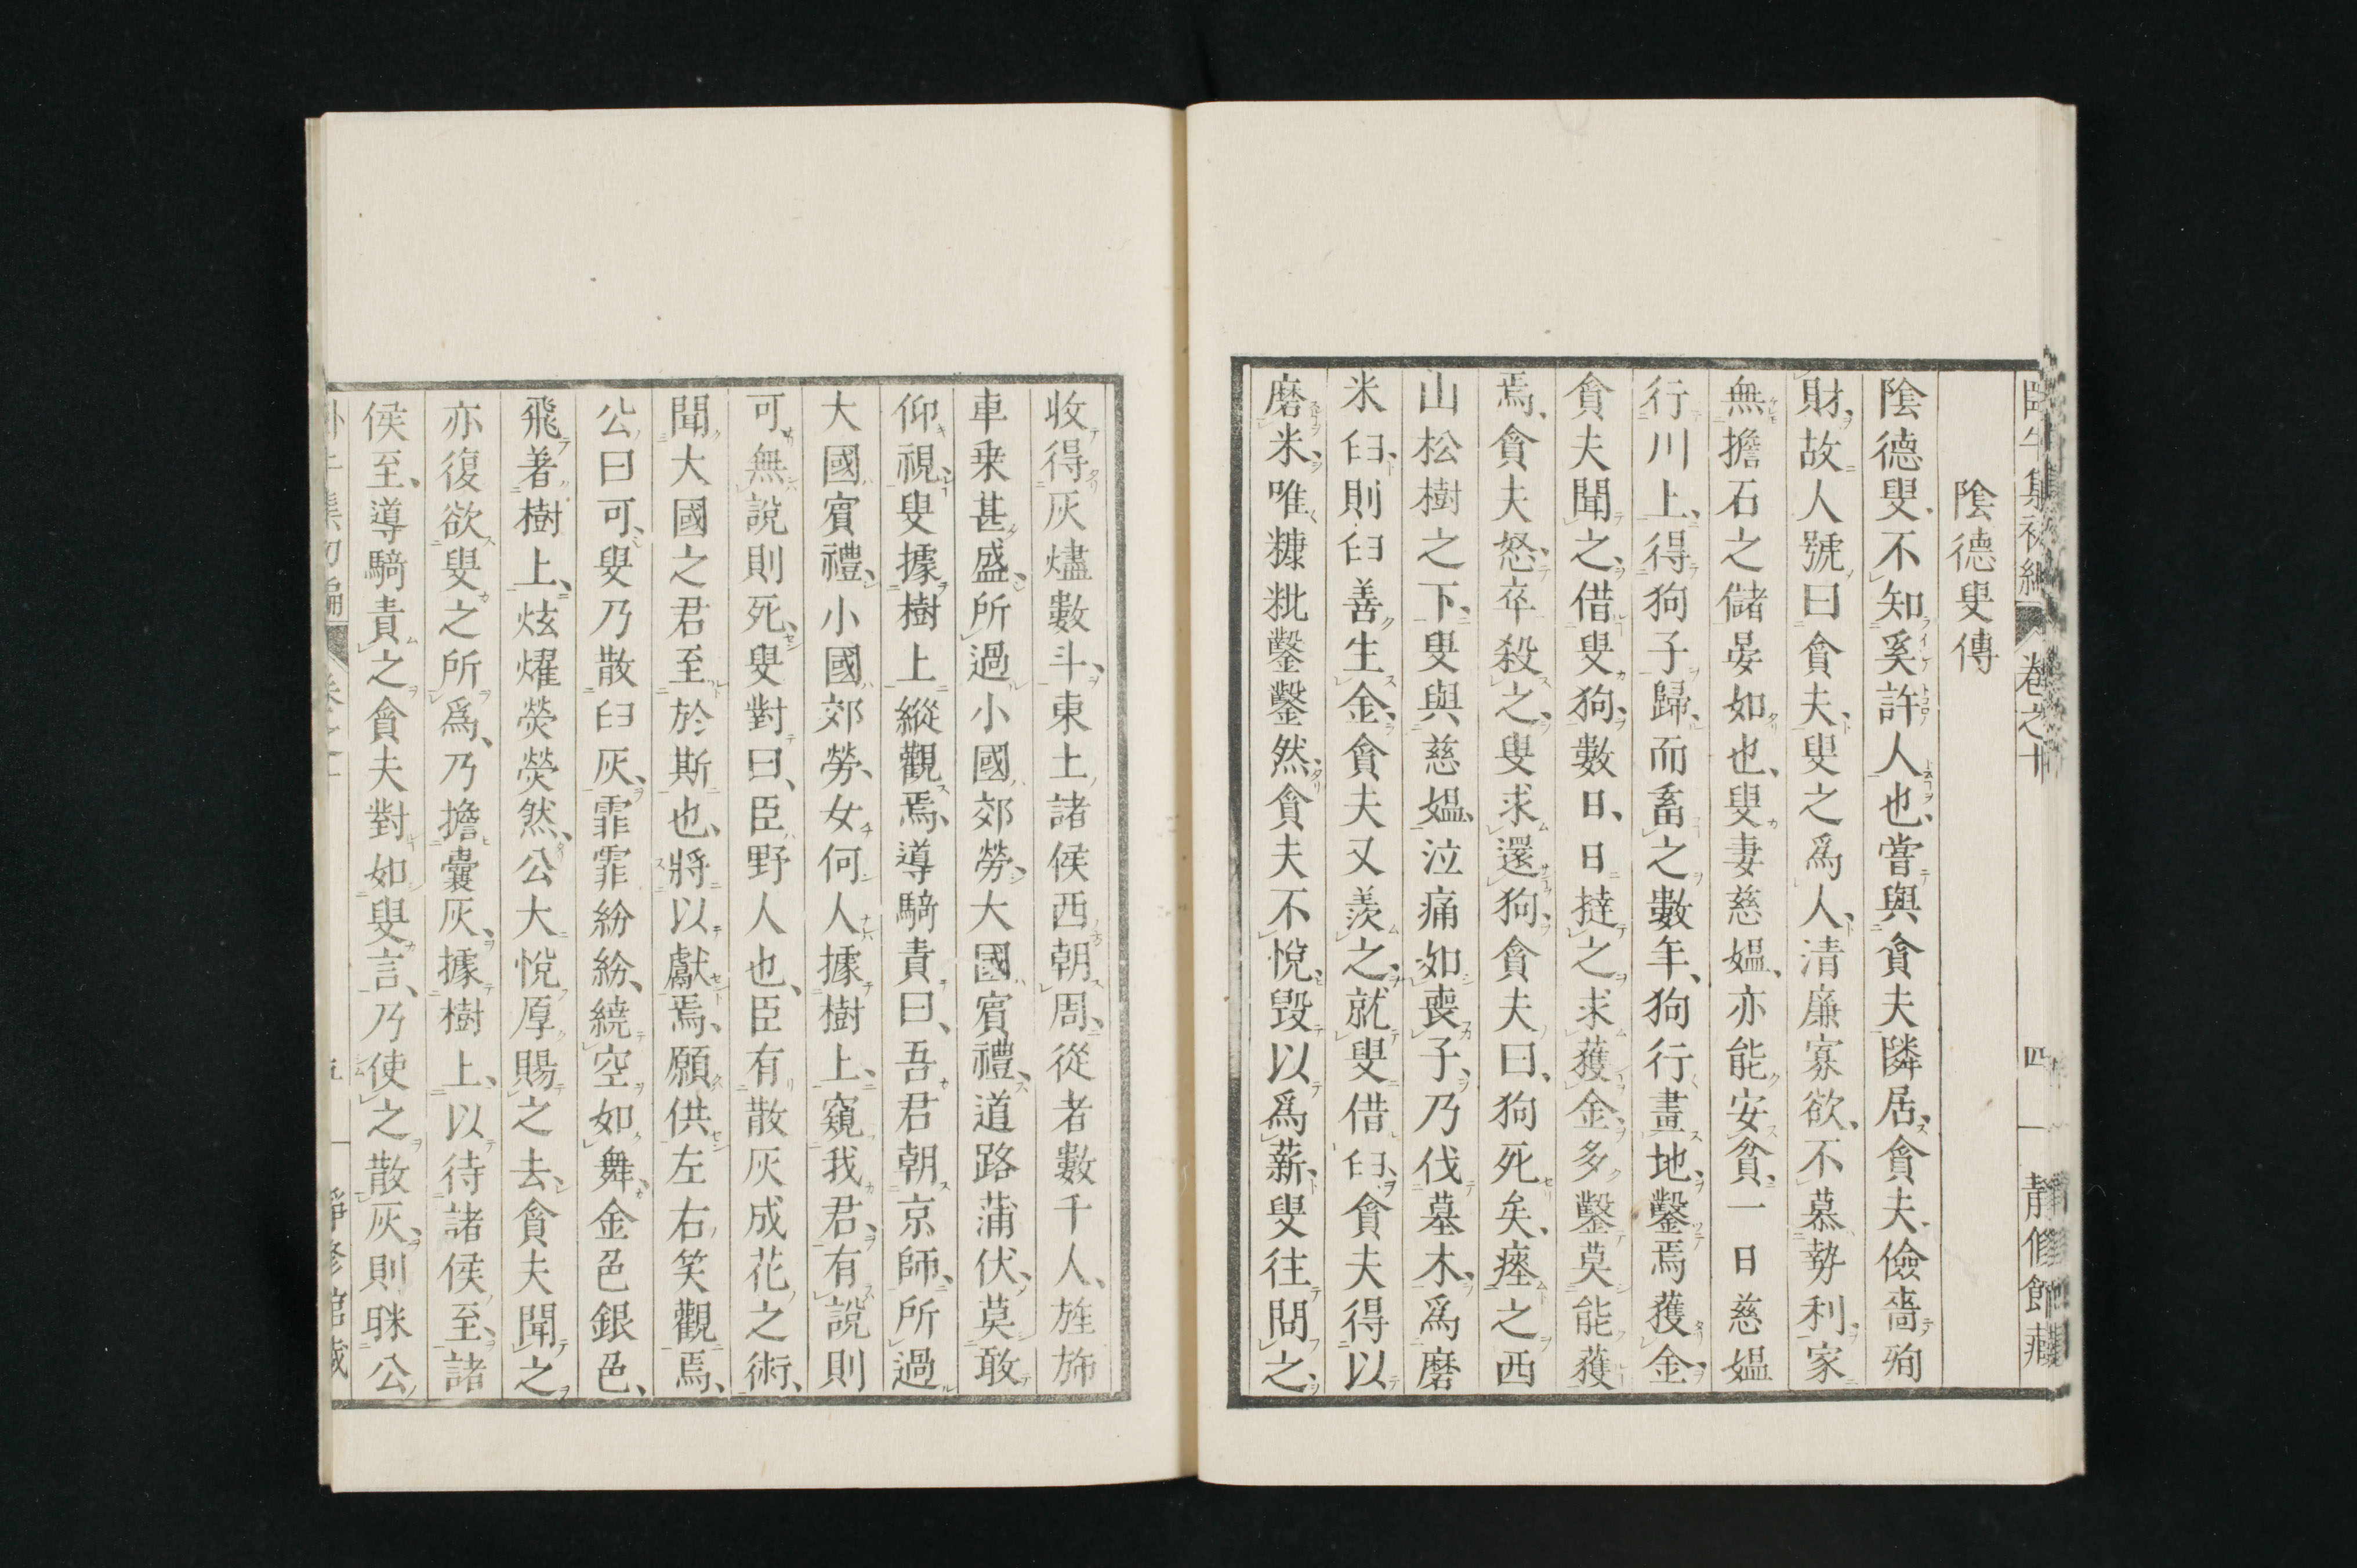 陰德叟傳
陰德叟、不知奚許人也、嘗與貪夫隣居、貪夫、儉嗇殉
財、故人號曰貪夫、叟之爲人、清廉寡欲、不慕勢利、家
無擔石之儲晏如也、叟妻慈媼、亦能安貧、一日慈媼
行川上、得狗子歸、而畜之數年、狗行畫地、鑿焉獲金、
貪夫聞之、借叟狗、數日、日撻之求獲金、多鑿莫能獲
焉、貪夫怒、卒殺之、叟求還狗、貪夫曰、狗死矣、瘞之西
山松樹之下、叟與慈媼、泣痛如喪子、乃伐墓木、爲磨
米臼、則臼善生金、貪夫又羨之、就叟借臼、貪夫得以
磨米、唯糠粃鑿鑿然、貪夫不悅、毀以爲薪、叟往問之、
收得灰燼數斗、東土諸侯西朝周、從者數千人、旌旆
車乗甚盛、所過小國郊勞、大國賓禮、道路蒲伏、莫敢
仰視、叟據樹上縱觀焉、導騎責曰、吾君朝京師、所過
大國賓禮、小國郊勞、女何人據樹上、窺我君、有說則
可、無說則死、叟對曰、臣野人也、臣有散灰成花之術、
聞大國之君至於斯也、將以獻焉、願供左右笑觀焉、
公曰可、叟乃散臼灰、霏霏紛紛、繞空如舞、金色銀色、
飛著樹上、炫燿熒熒然、公大悅厚賜之去、貪夫聞之
亦復欲叟之所爲、乃擔囊灰、據樹上、以待諸侯至、諸
侯至、導騎責之貪夫對如叟言、乃使之散灰、則眯公
卷之十
四
靜修館藏